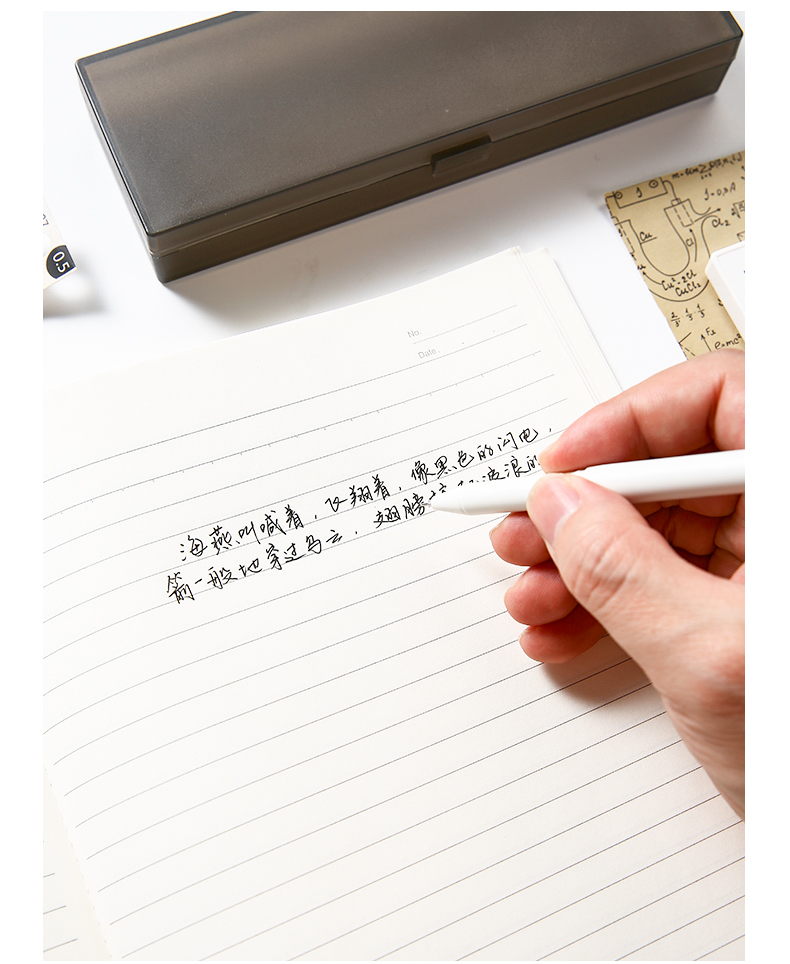 No.
Date.
海燕叫喊着，飞翔着，像黑色的闪电，
箭一般地穿过乌云，翅膀 波浪的
0.5
Cu
Cl
Cl₂
Cu²⁺2Cl
CuCl₂
Fe
e=mc²